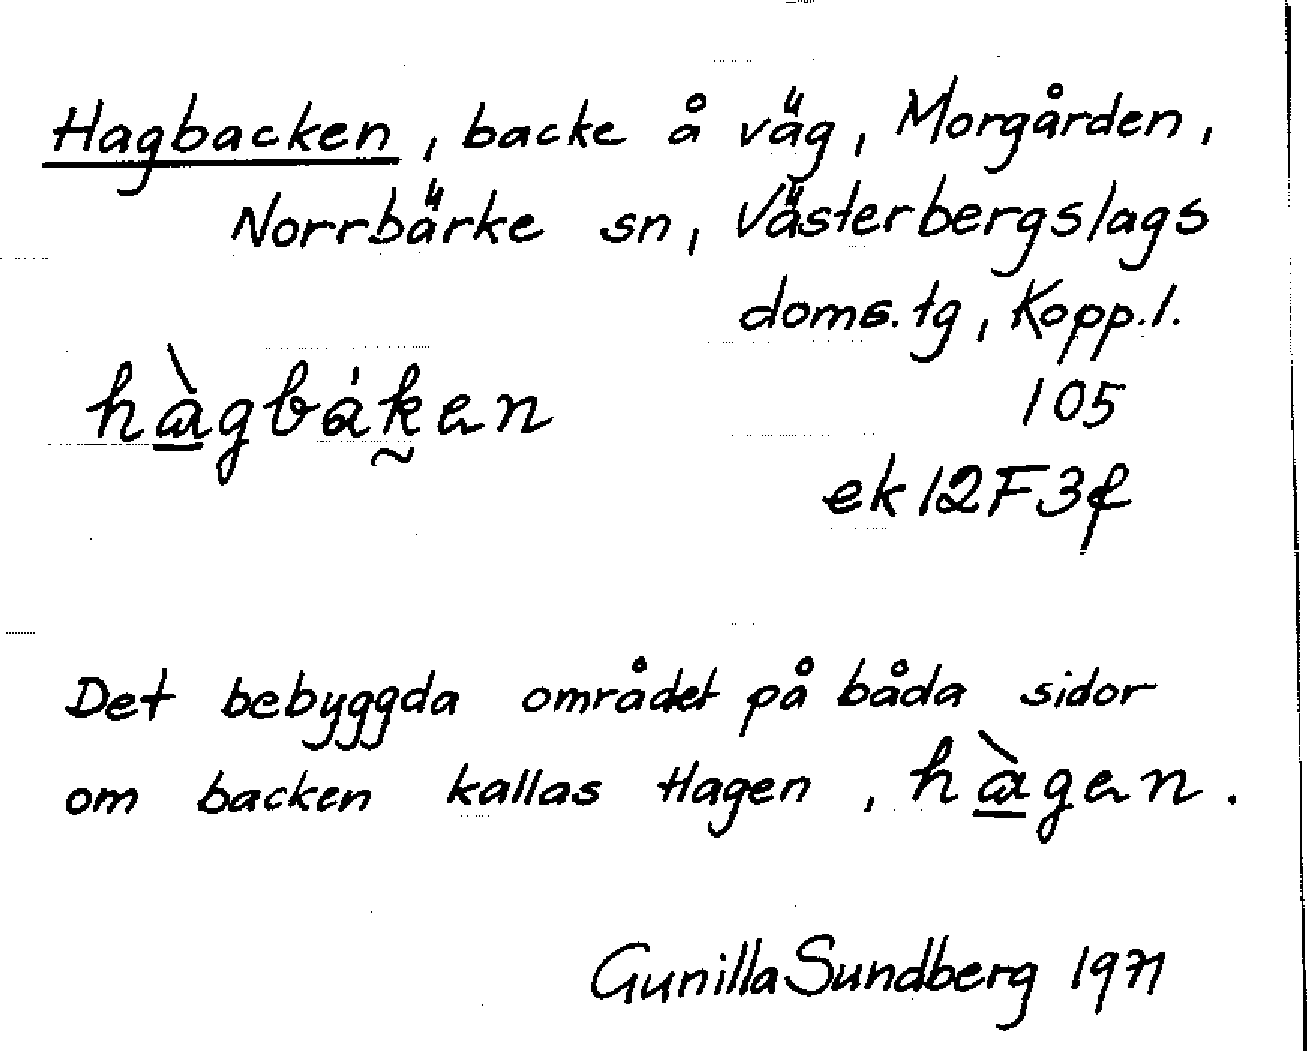 Hagbacken, backe å väg, Morgården,
Norrbärke sn, Västerbergslags
doms. tg, Kopp.l.
hàgbáken
105
ek 12F3f
Det bebyggda området på båda sidor
om backen kallas Hagen, hàgen.
Gunilla Sundberg 1971